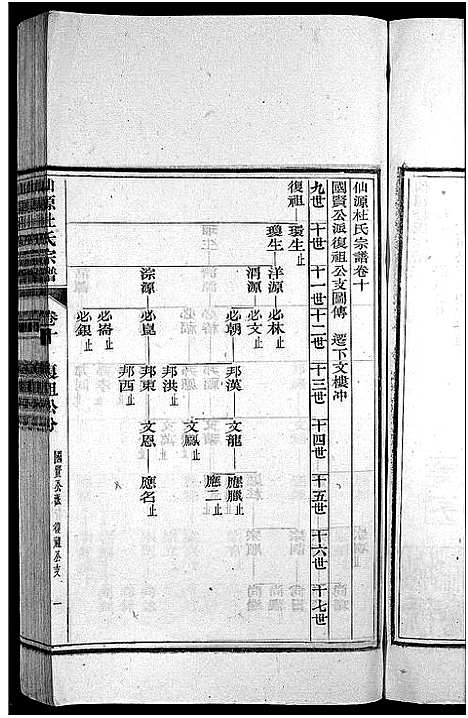 仙源杜氏宗譜卷十
國賓公派復祖公支圖傳 遷下文樓冲
九世 十世 十一世 十二世 十三世 十四世 十五世 十六世 十七世
復祖 環生止
瓊生 洋源 必林止
渭源 必文止
必朝 邦漢 文龍 應臘止
應二止
文鳳止
邦洪止
淙源 必崑 邦東 文恩 應名止
邦西止
必崙止
必銀止
仙源杜氏宗譜 卷十 復祖公分
國賓公派 復祖公支 一